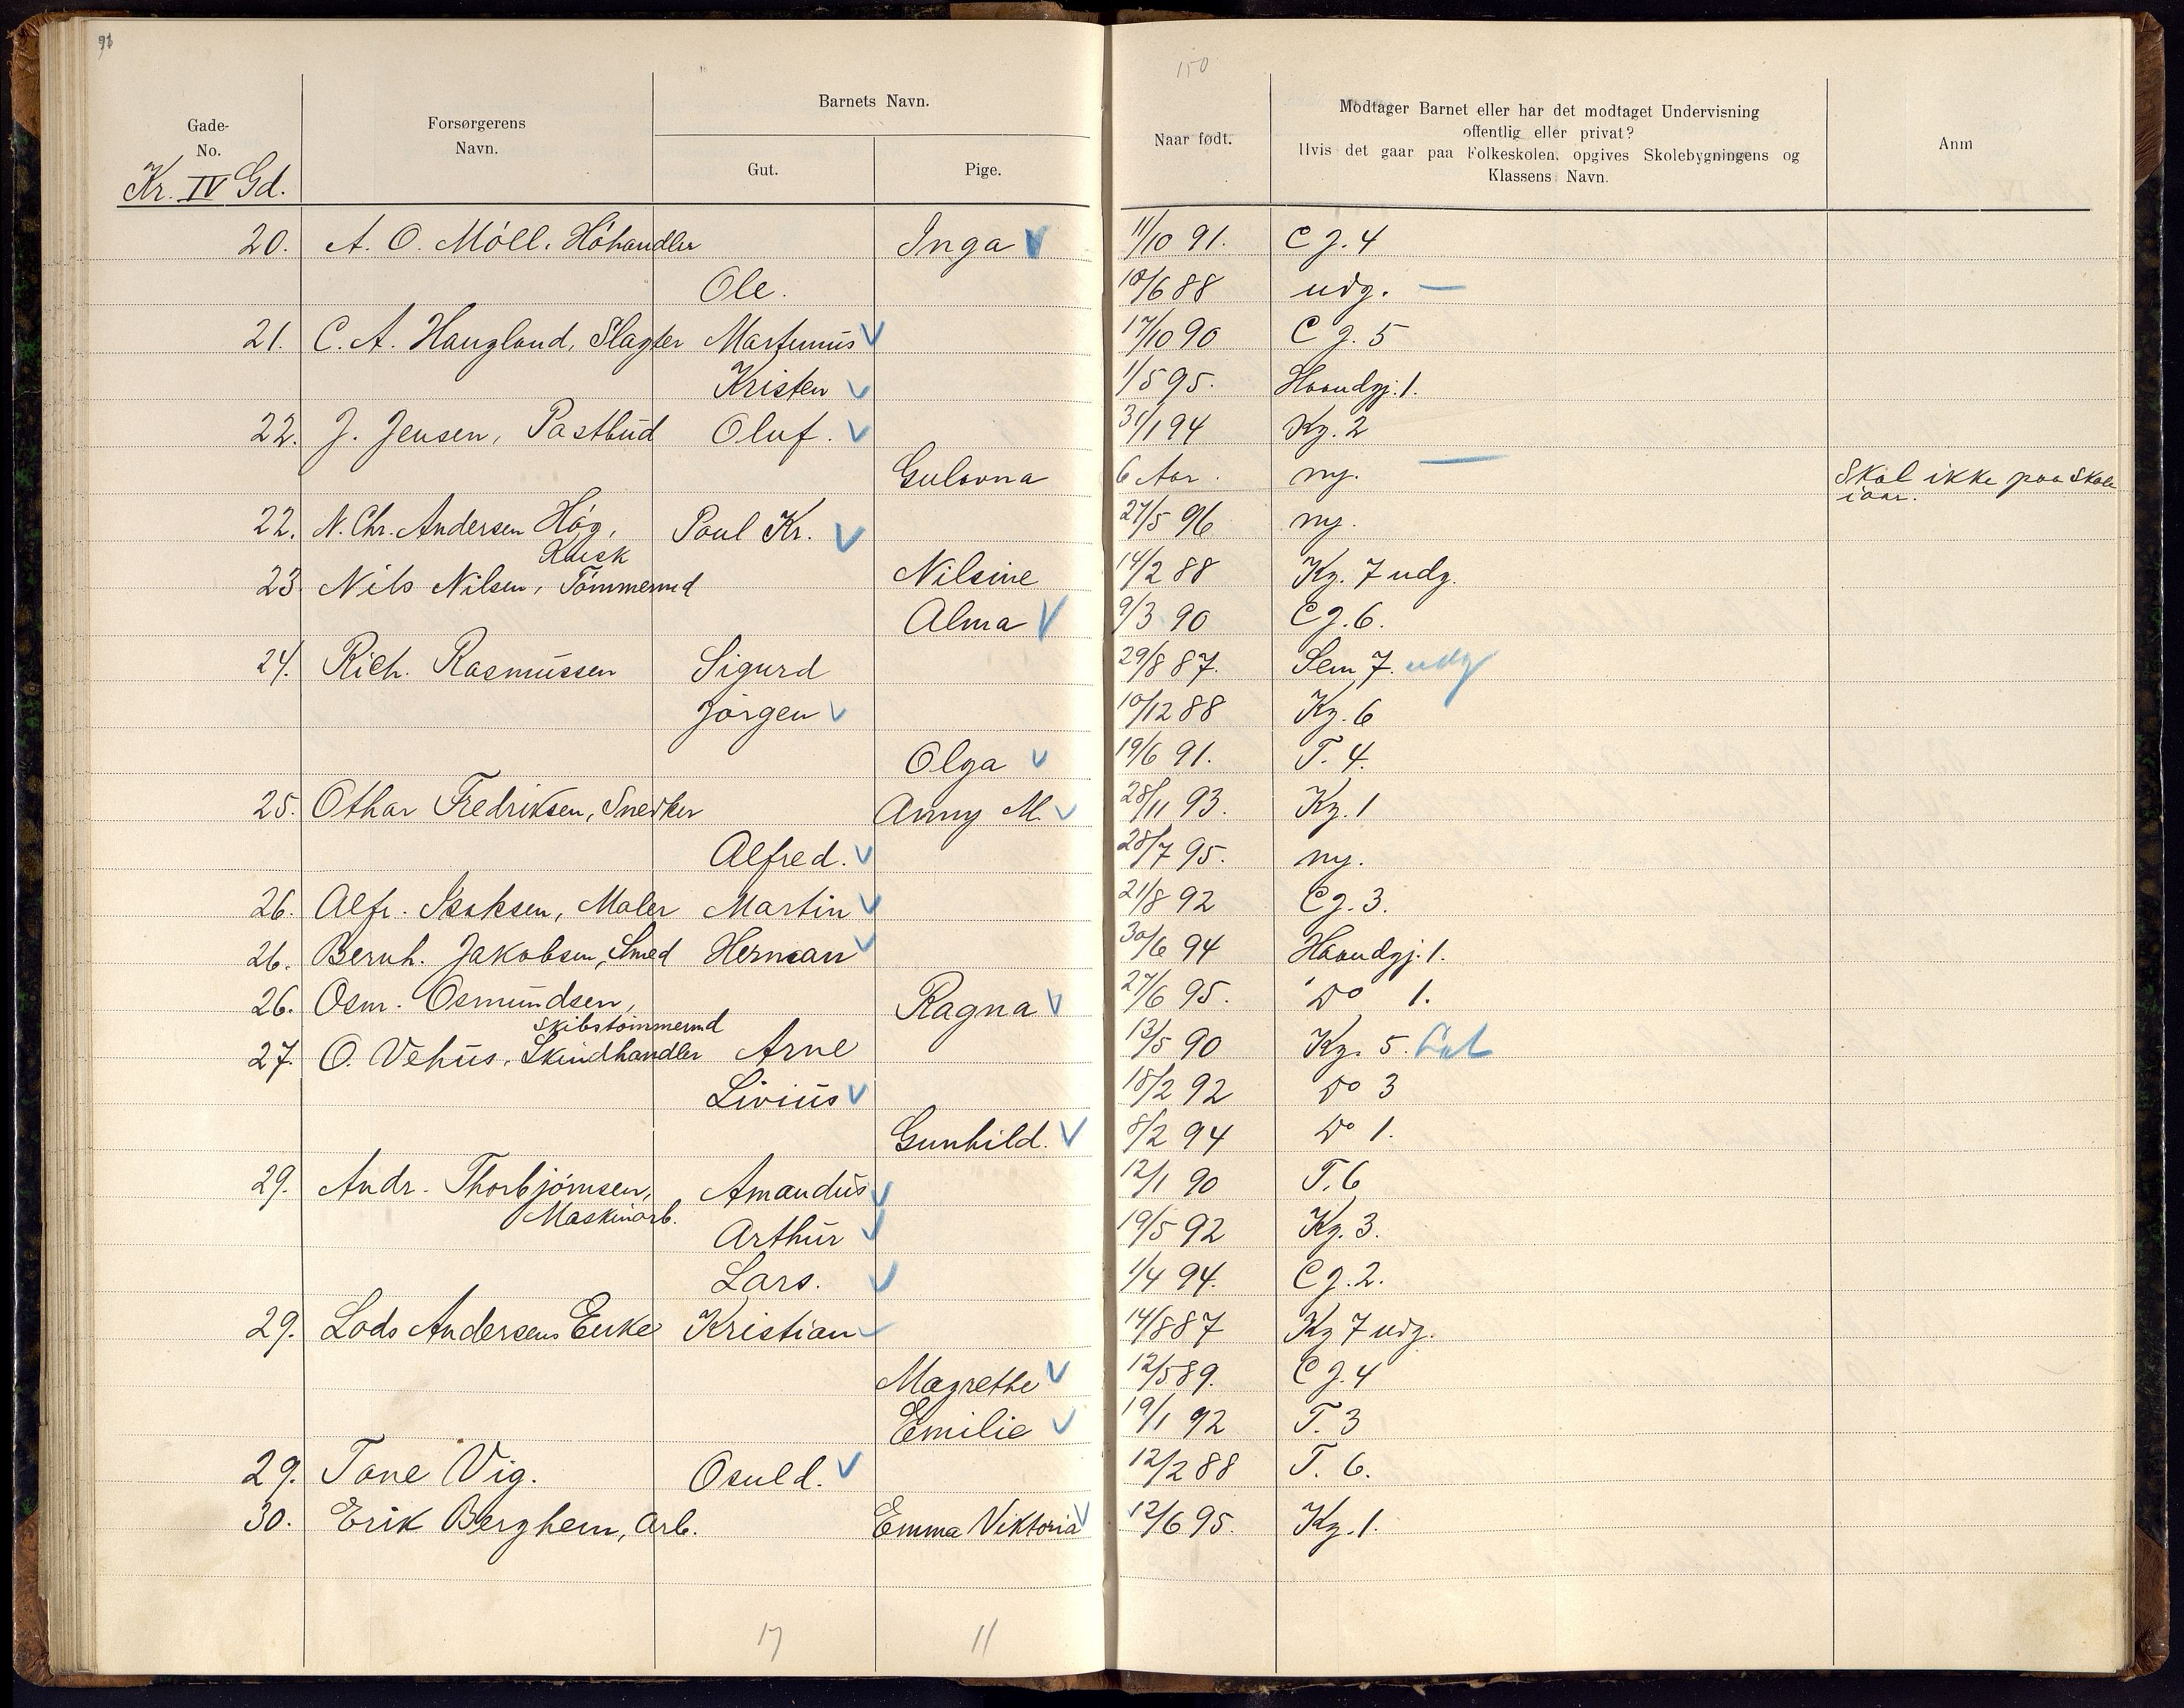 98
150
Gade-
No.
Kr. IV Gd.
Forsørgerens
Navn.
Barnets Navn.
Gut.
Pige.
Naar født.
Modtager Barnet eller har det modtaget Undervisning
offentlig eller privat?
Hvis det gaar paa Folkeskolen, opgives Skolebygningens og
Klassens Navn.
Anm
20. A. O. Möll. Höhandler Inga V 11/10 91. C g. 4
Ole. 18/6 88 udg. —
21. C. A. Haugland, Slagter Martinius V 17/10 90 C g. 5
Kristen V 1/5 95. Haandgj. 1.
22. J. Jensen, Postbud Oluf. V 31/1 94 Kg. 2
Gulovna 6 Aar. ny. — Skal ikke paa Skole
iaar.
22. N. Chr. Andersen Hög, Paul Kr. V 27/5 96 ny.
Kusk
23. Nils Nilsen, Tömmermd Nilsine 14/2 88 Kg. 7 udg.
Alma V 9/3 90 C g. 6.
24. Rich. Rasmussen Sigurd 29/8 87. Sem. 7. udg
Jörgen V 10/12 88 Kg. 6
Olga V 19/6 91. T. 4.
25. Othar Fredriksen, Snedker Anny M. V 28/11 93. Kg. 1
Alfred. V 28/7 95. ny.
26. Alfr. Isaksen, Maler Martin V 21/8 92 C g. 3.
26. Bernh. Jakobsen, Smed Herman V 30/6 94 Haandgj. 1.
26. Osm. Osmundsen, Ragna V 27/6 95. Do 1.
Skibstömmermd
27. O. Vehus, Skindhandler Arne 13/5 90 Kg. 5.
Livius V 18/2 92 Do 3
Gunhild. V 8/2 94 Do 1.
29. Andr. Thorbjörnsen, Amandus V 12/1 90 T. 6
Maskinarb.
Arthur V 19/5 92 Kg. 3.
Lars. V 1/4 94. C g. 2.
29. Lods Andersens Enke Kristian V 14/8 87 Kg 7 udg.
Magrethe V 12/5 89. C g. 4
Emilie V 19/1 92 T. 3
29. Tone Vig. Osuld. V 12/2 88 T. 6.
30. Erik Berghem, Arb. Emma Viktoria V 12/6 95. Kg. 1.
17 11